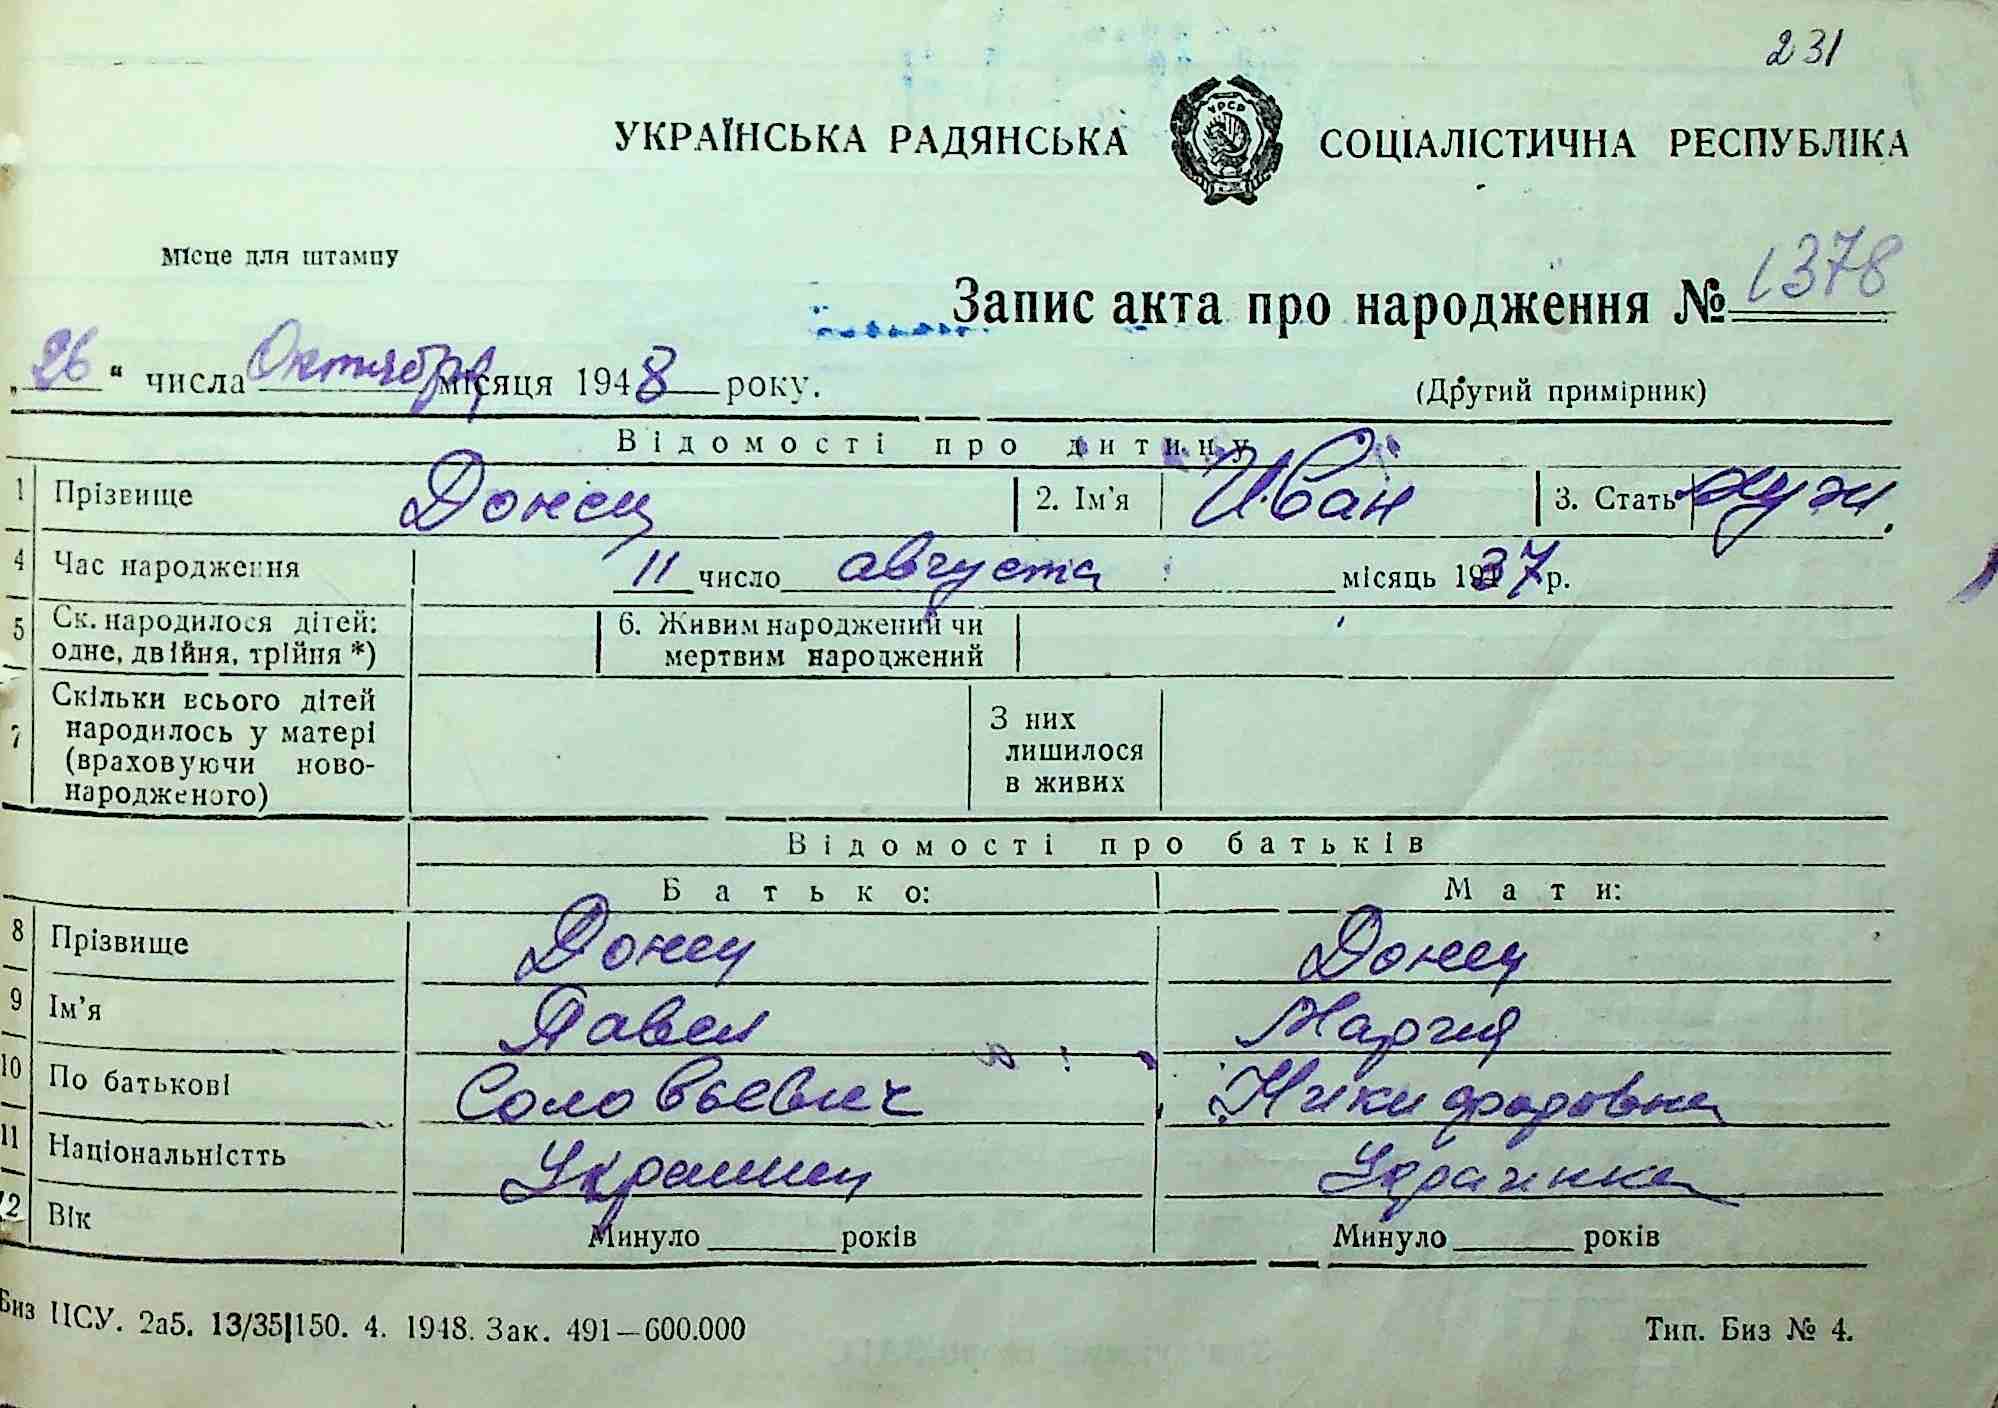 231
УКРАЇНСЬКА РАДЯНСЬКА СОЦІАЛІСТИЧНА РЕСПУБЛІКА
УРСР
Місце для штампу
Запис акта про народження № 1378
„26“ числа Октября місяця 1948 року.
(Другий примірник)
Відомості про дитину
1 Прізвище Донец 2. Ім'я Иван 3. Стать муж.
4 Час народження 11 число августа місяць 1937 р.
5 Ск. народилося дітей: одне, двійня, трійня *) 6. Живим народжений чи мертвим народжений
7 Скільки всього дітей народилось у матері (враховуючи ново-народженого) З них лишилося в живих
Відомості про батьків
Батько: Мати:
8 Прізвище Донец Донец
9 Ім'я Павел Мария
10 По батькові Соловьевич Никифоровна
11 Національністть Украинец Украинка
12 Вік Минуло ____ років Минуло ____ років
Биз ЦСУ. 2а5. 13/35|150. 4. 1948. Зак. 491—600.000 Тип. Биз № 4.